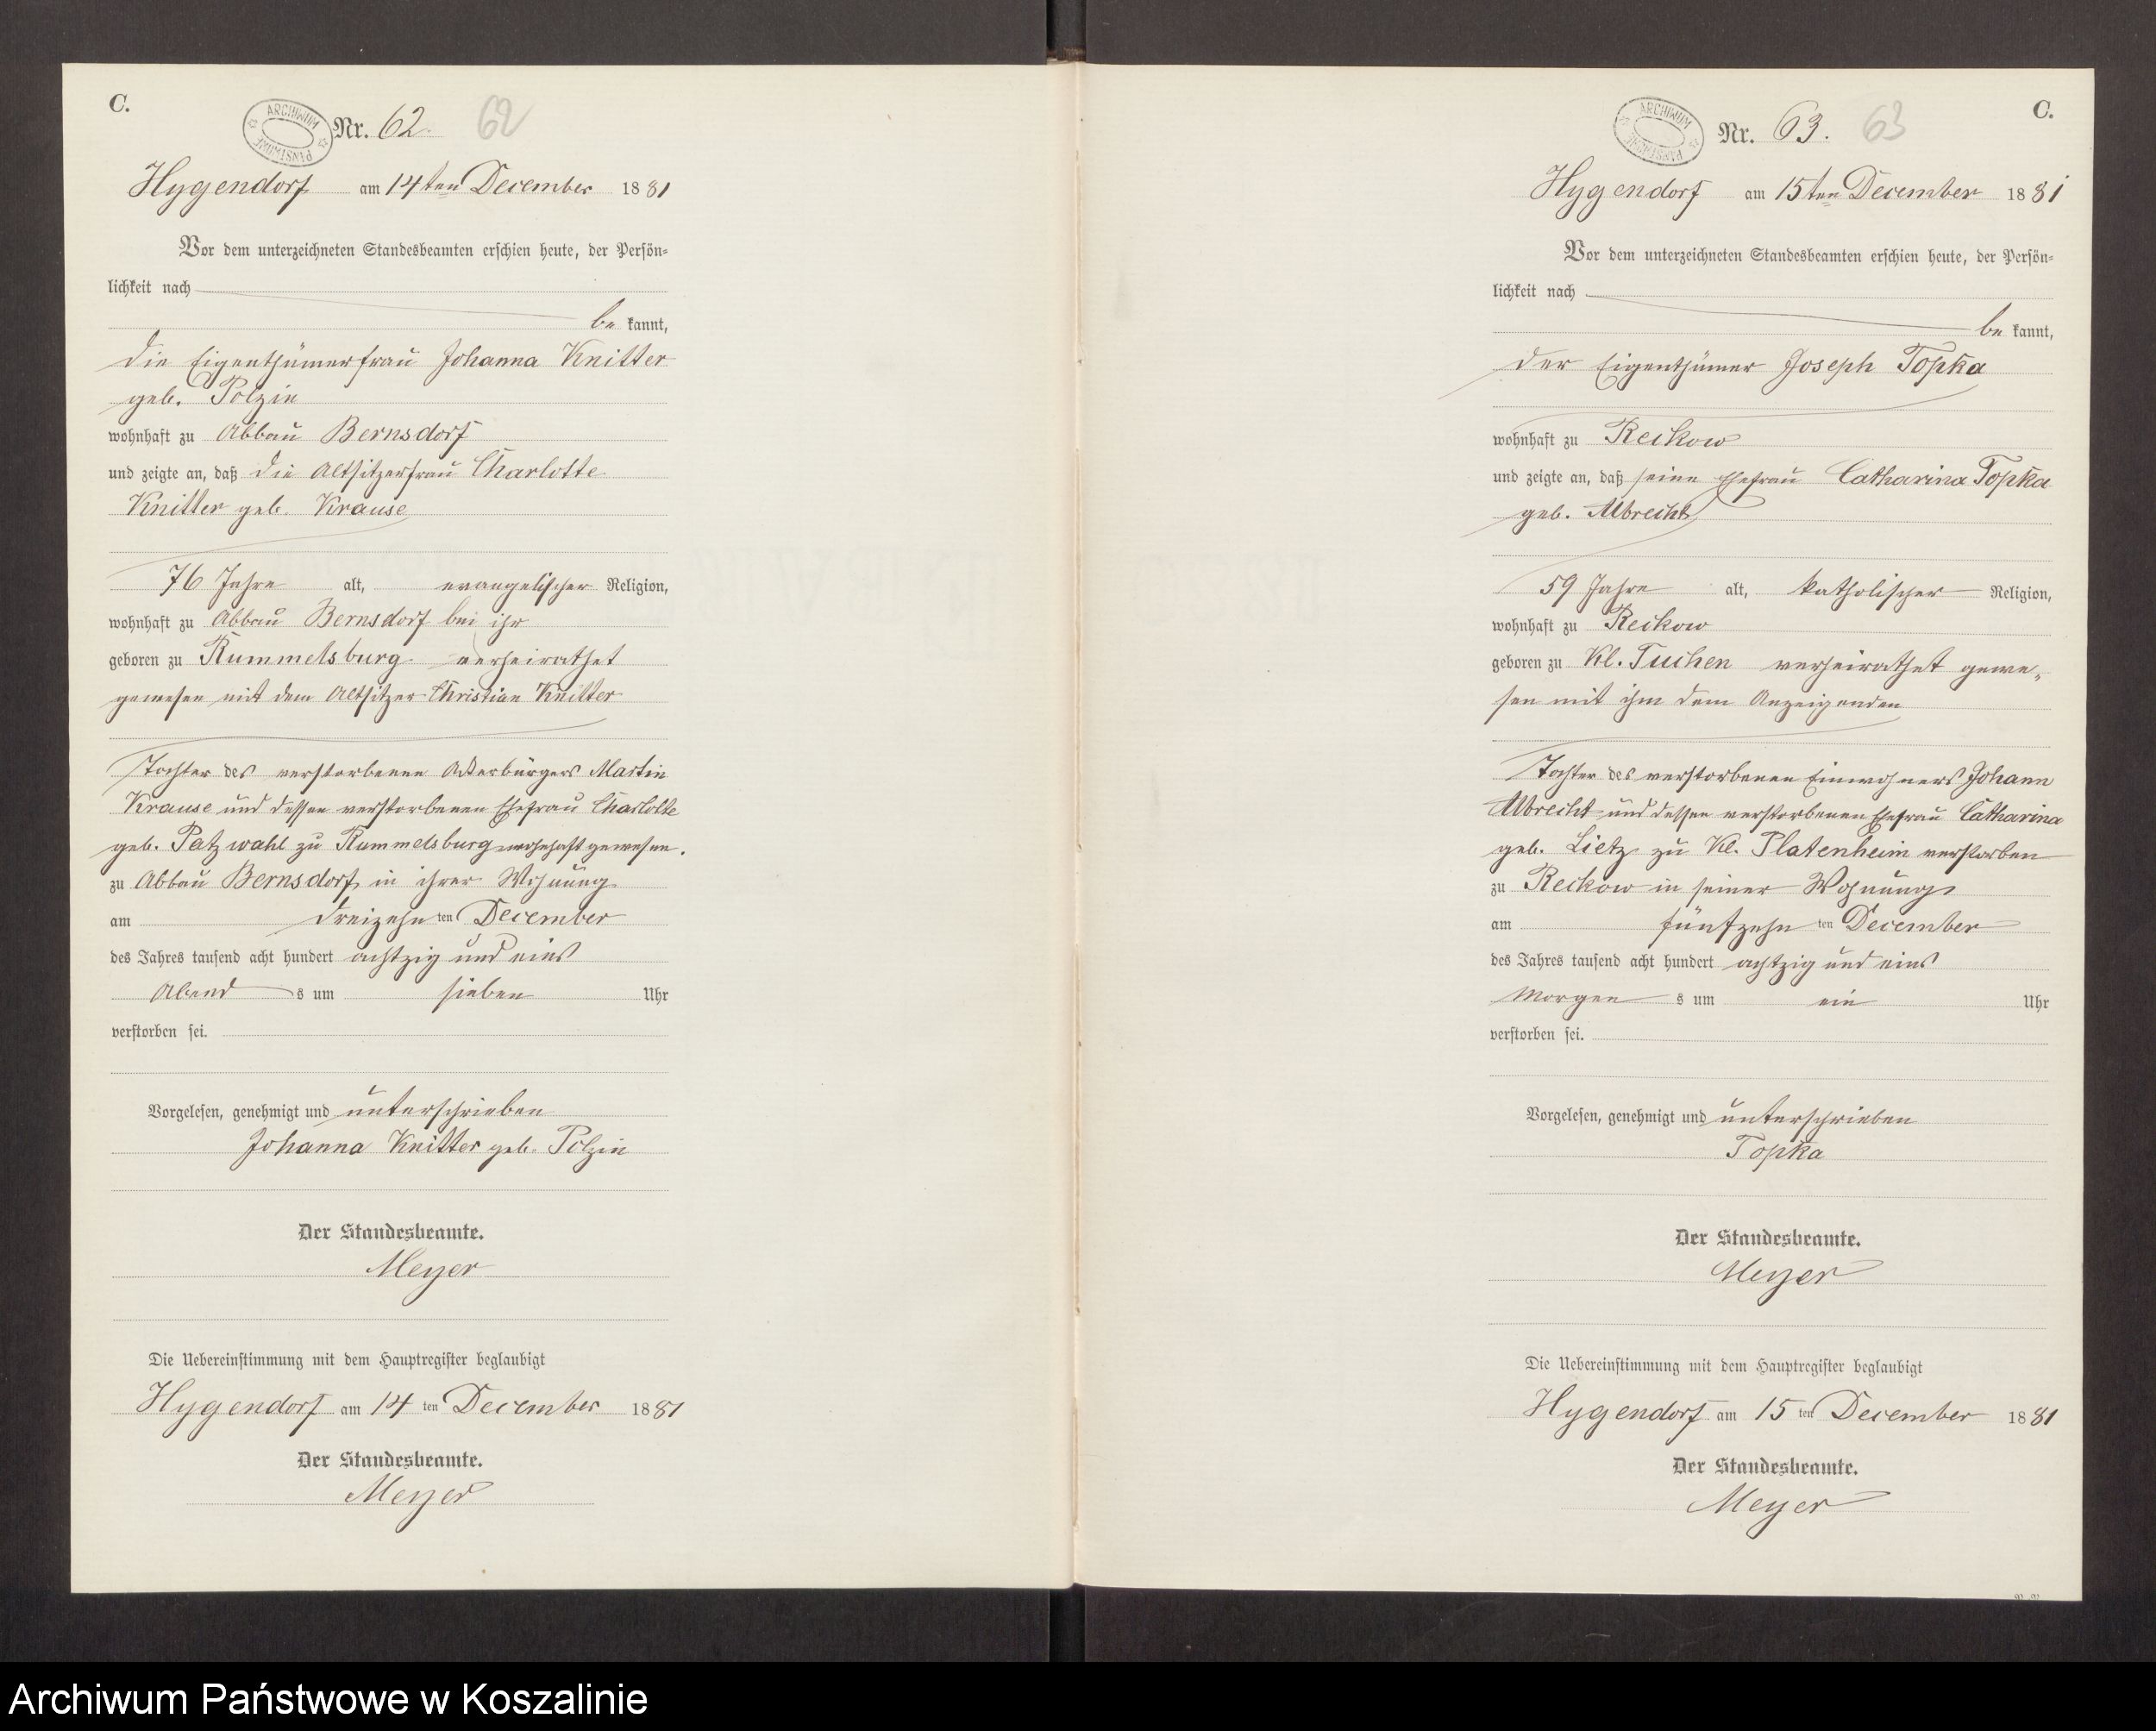 C.
ARCHIWUM PAŃSTWOWE
Nr. 62. 62
Hygendorf am 14ten December 1881
Vor dem unterzeichneten Standesbeamten erschien heute, der Persön-
lichkeit nach
be kannt,
die Eigenthümerfrau Johanna Knitter
geb. Polzin
wohnhaft zu Abbau Bernsdorf
und zeigte an, daß die Altsitzerfrau Charlotte
Knitter geb. Krause
76 Jahre alt, evangelischer Religion,
wohnhaft zu Abbau Bernsdorf bei ihr
geboren zu Rummelsburg verheirathet
gewesen mit dem Altsitzer Christian Knitter
Tochter des verstorbenen Ackerbürgers Martin
Krause und dessen verstorbenen Ehefrau Charlotte
geb. Patzwahl zu Rummelsburg wohnhaft gewesen.
zu Abbau Bernsdorf in ihrer Wohnung
am dreizehn ten December
des Jahres tausend acht hundert achtzig und eins
Abend s um sieben Uhr
verstorben sei.
Vorgelesen, genehmigt und unterschrieben
Johanna Knitter geb. Polzin
Der Standesbeamte.
Meyer
Die Uebereinstimmung mit dem Hauptregister beglaubigt
Hygendorf am 14 ten December 1881
Der Standesbeamte.
Meyer
C.
ARCHIWUM PAŃSTWOWE
Nr. 63. 63
Hygendorf am 15ten December 1881
Vor dem unterzeichneten Standesbeamten erschien heute, der Persön-
lichkeit nach
be kannt,
der Eigenthümer Joseph Topka
wohnhaft zu Reckow
und zeigte an, daß seine Ehefrau Catharina Topka
geb. Albrecht
59 Jahre alt, katholischer Religion,
wohnhaft zu Reckow
geboren zu Kl. Tuchen verheirathet gewe-
sen mit ihm dem Anzeigenden
Tochter des verstorbenen Einwohners Johann
Albrecht und dessen verstorbenen Ehefrau Catharina
geb. Lietz zu Kl. Platenheim verstorben
zu Reckow in seiner Wohnung
am fünfzehn ten December
des Jahres tausend acht hundert achtzig und eins
Morgen s um ein Uhr
verstorben sei.
Vorgelesen, genehmigt und unterschrieben
Topka
Der Standesbeamte.
Meyer
Die Uebereinstimmung mit dem Hauptregister beglaubigt
Hygendorf am 15 ten December 1881
Der Standesbeamte.
Meyer
Archiwum Państwowe w Koszalinie